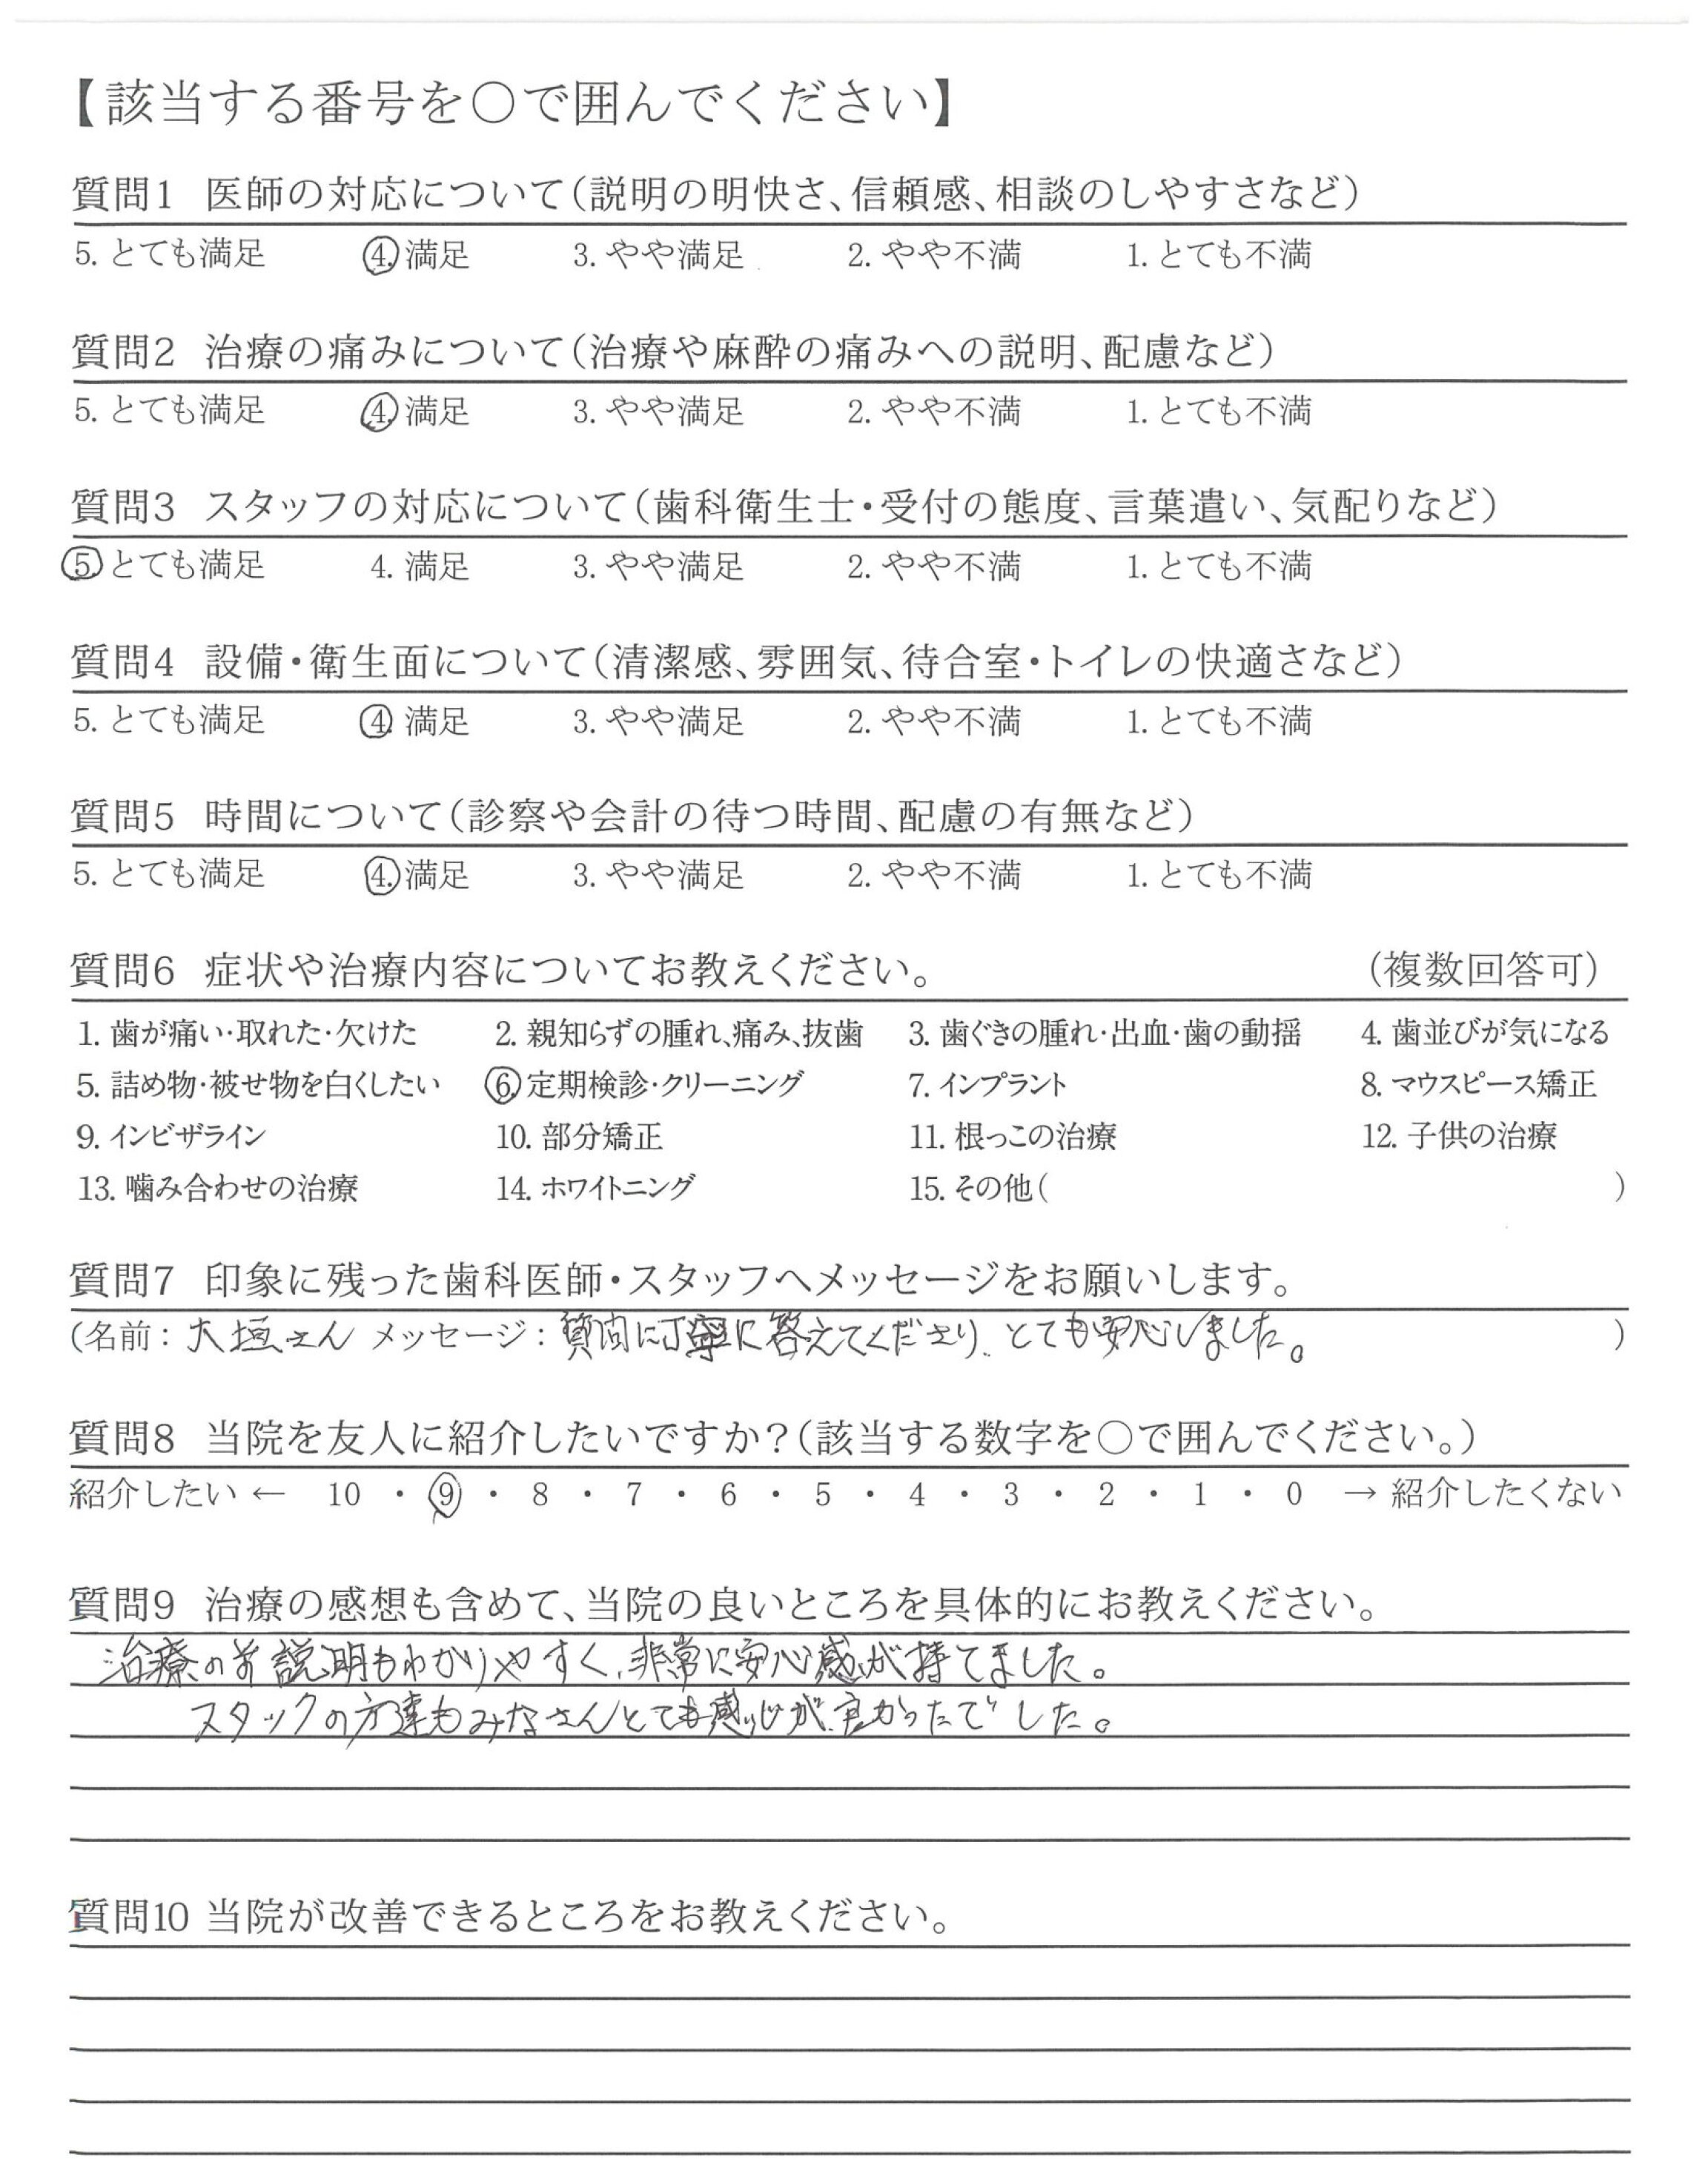 【該当する番号を○で囲んでください】
質問1 医師の対応について（説明の明快さ、信頼感、相談のしやすさなど）
5. とても満足 4. 満足 3. やや満足 2. やや不満 1. とても不満
質問2 治療の痛みについて（治療や麻酔の痛みへの説明、配慮など）
5. とても満足 4. 満足 3. やや満足 2. やや不満 1. とても不満
質問3 スタッフの対応について（歯科衛生士・受付の態度、言葉遣い、気配りなど）
5. とても満足 4. 満足 3. やや満足 2. やや不満 1. とても不満
質問4 設備・衛生面について（清潔感、雰囲気、待合室・トイレの快適さなど）
5. とても満足 4. 満足 3. やや満足 2. やや不満 1. とても不満
質問5 時間について（診察や会計の待つ時間、配慮の有無など）
5. とても満足 4. 満足 3. やや満足 2. やや不満 1. とても不満
質問6 症状や治療内容についてお教えください。 （複数回答可）
1. 歯が痛い・取れた・欠けた 2. 親知らずの腫れ、痛み、抜歯 3. 歯ぐきの腫れ・出血・歯の動揺 4. 歯並びが気になる
5. 詰め物・被せ物を白くしたい 6. 定期検診・クリーニング 7. インプラント 8. マウスピース矯正
9. インビザライン 10. 部分矯正 11. 根っこの治療 12. 子供の治療
13. 噛み合わせの治療 14. ホワイトニング 15. その他（ ）
質問7 印象に残った歯科医師・スタッフへメッセージをお願いします。
（名前：大垣さん メッセージ：質問に丁寧に答えてくださり、とても安心しました。 ）
質問8 当院を友人に紹介したいですか？（該当する数字を○で囲んでください。）
紹介したい ← 10 ・ 9 ・ 8 ・ 7 ・ 6 ・ 5 ・ 4 ・ 3 ・ 2 ・ 1 ・ 0 → 紹介したくない
質問9 治療の感想も含めて、当院の良いところを具体的にお教えください。
治療の説明もわかりやすく、非常に安心感が持てました。
スタッフの方達もみなさんとても感じが良かったでした。
質問10 当院が改善できるところをお教えください。